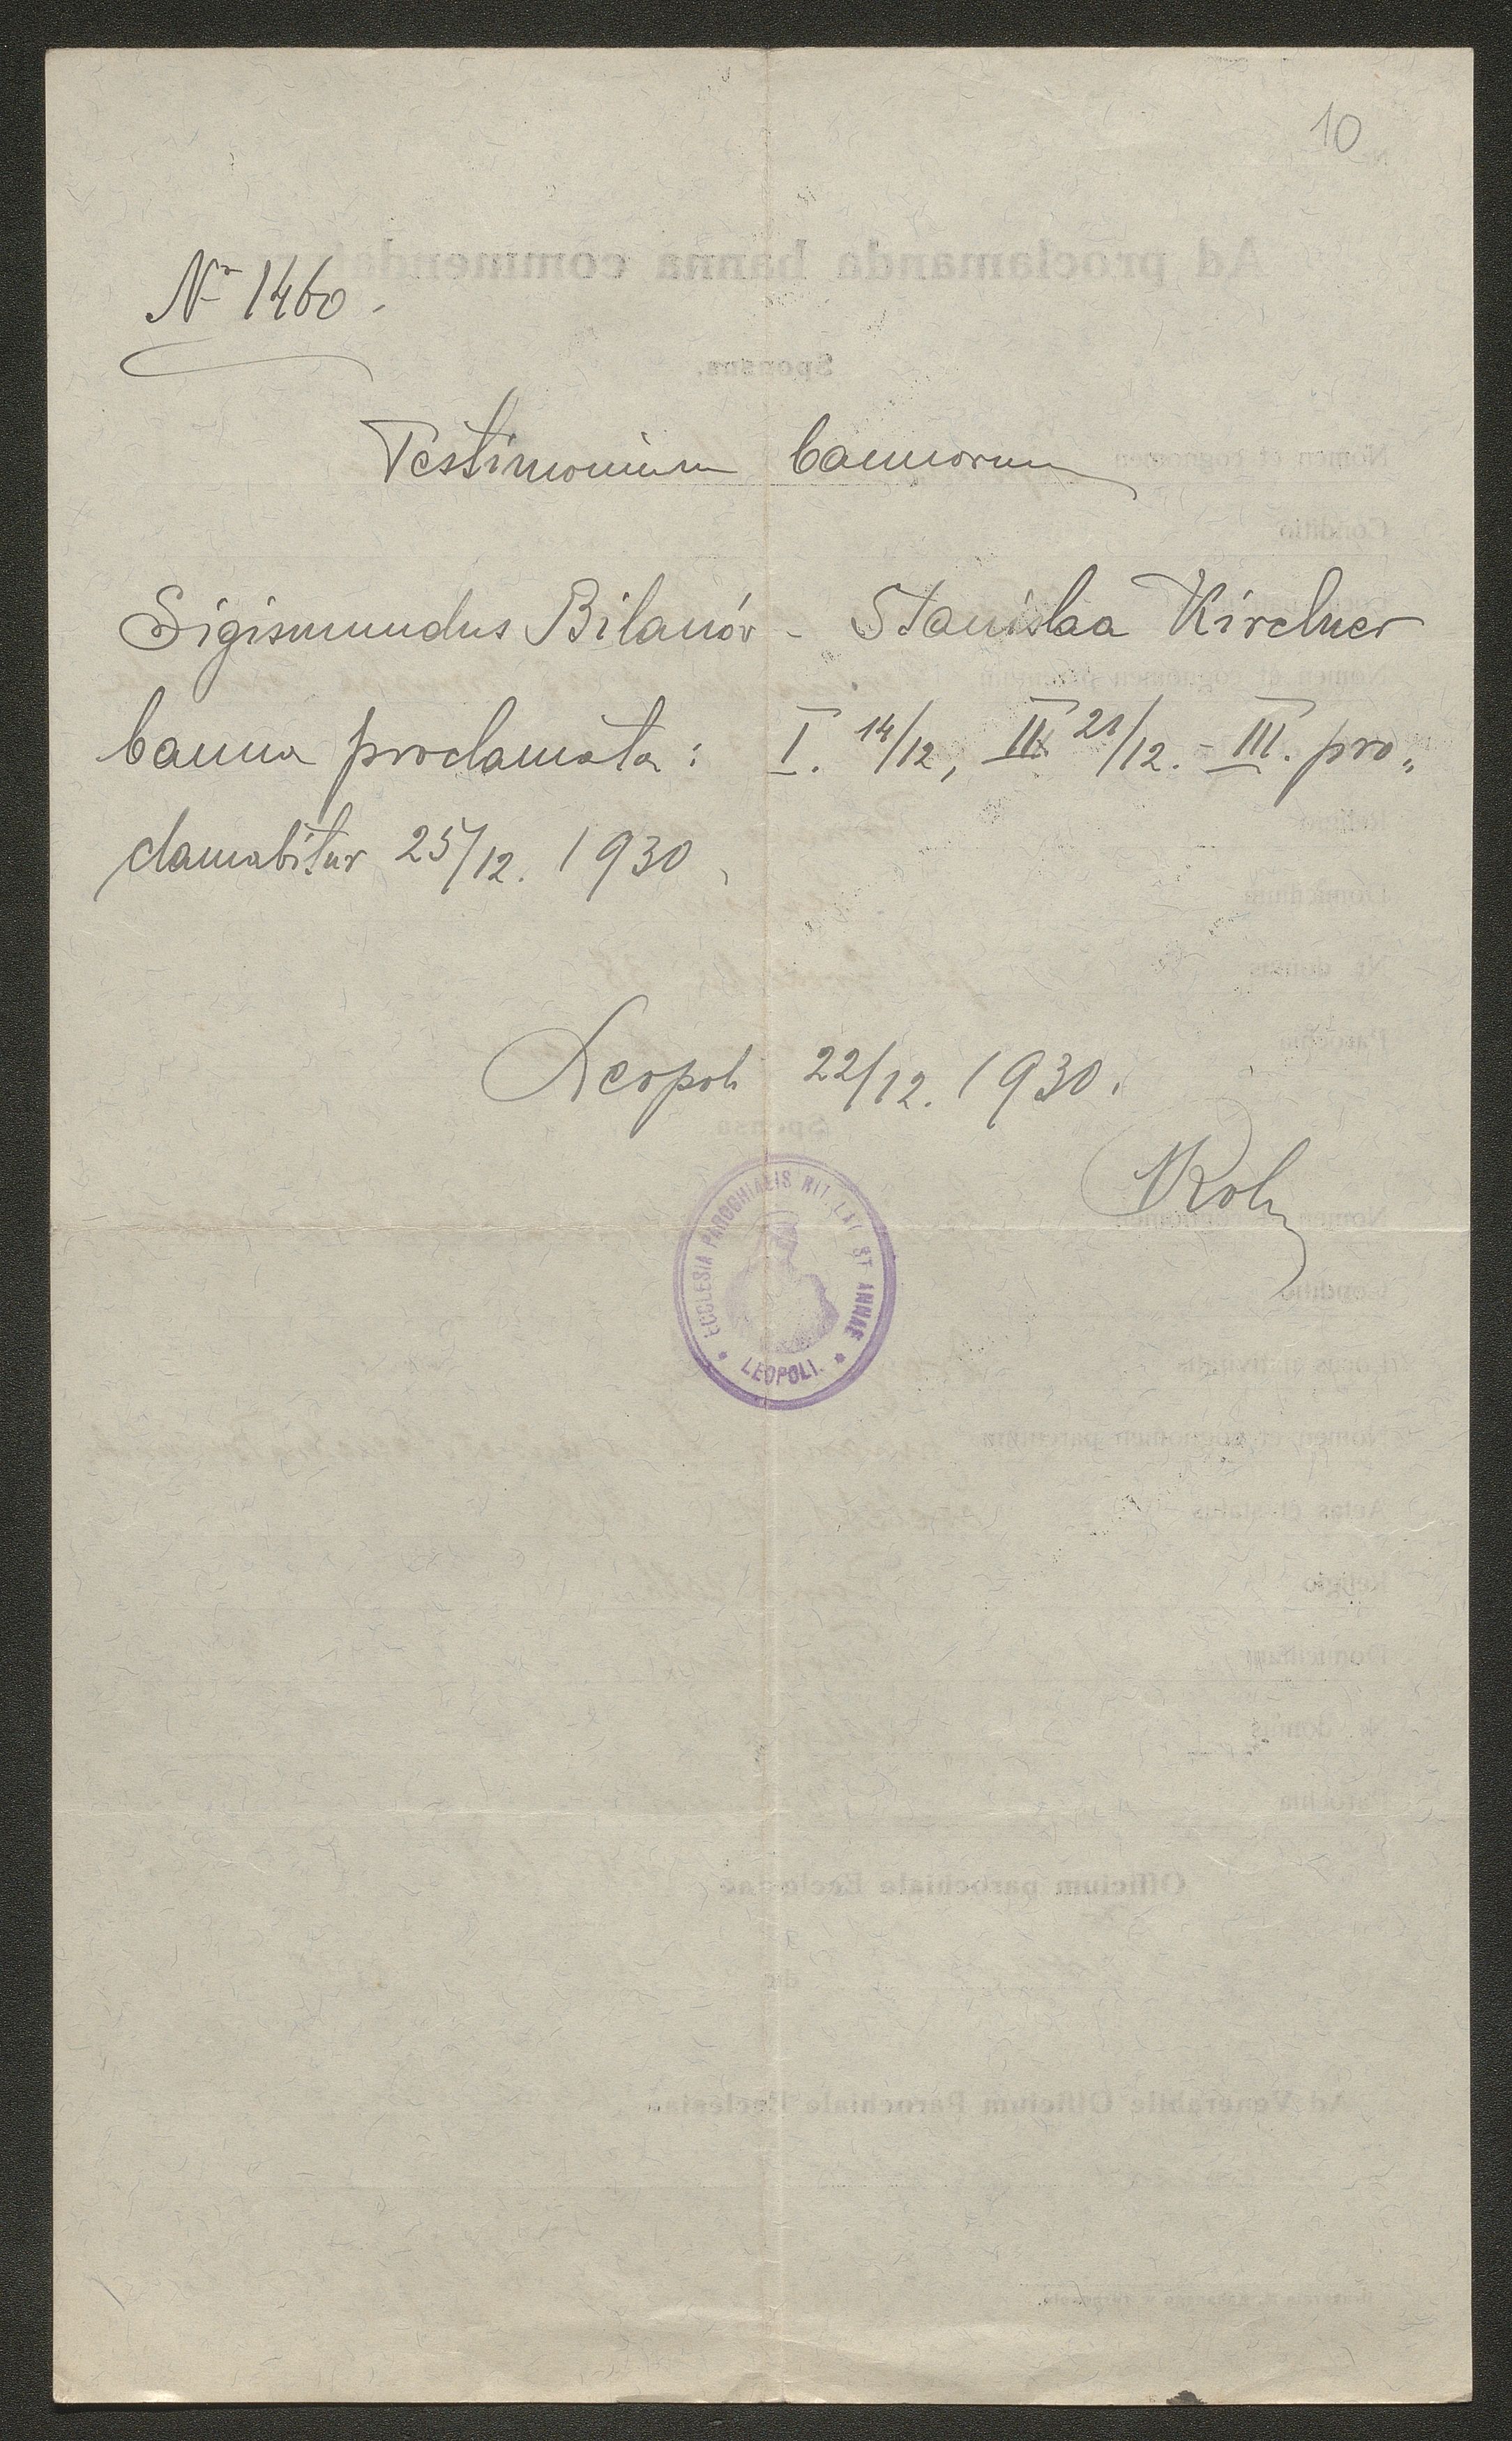 10
Nr 1460.
Testimonium bannorum
Sigismundus Bilanów - Stanislaa Kirchner
banna proclamata: I. 14/12, II 21/12. - III. pro„
clamabitur 25/12. 1930
Leopoli 22/12. 1930.
ECCLESIA PAROCHIALIS RIT. LAT. ST ANNAE
LEOPOLI.